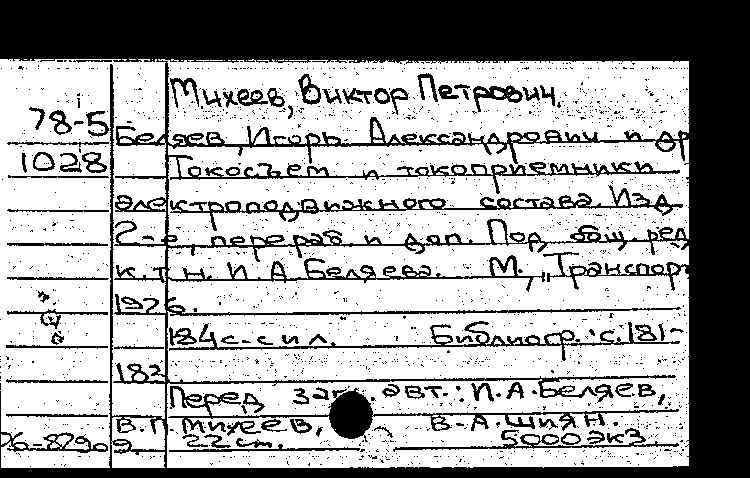 Михеев, Виктор Петрович.
78-5
Беляев, Игорь Александрович и др
1028 Токосъем и токоприемники
электроподвижного состава. Изд
2-е, перераб и доп. Под общ. ред
к.т.н. И.А.Беляева. М., „Транспорт
1976.
184с. с ил. Библиогр. с.181-
183
Перед загл. авт.: И.А.Беляев,
В.П.Михеев, В.А.Шиян.
76-87909. 22см. 5000экз